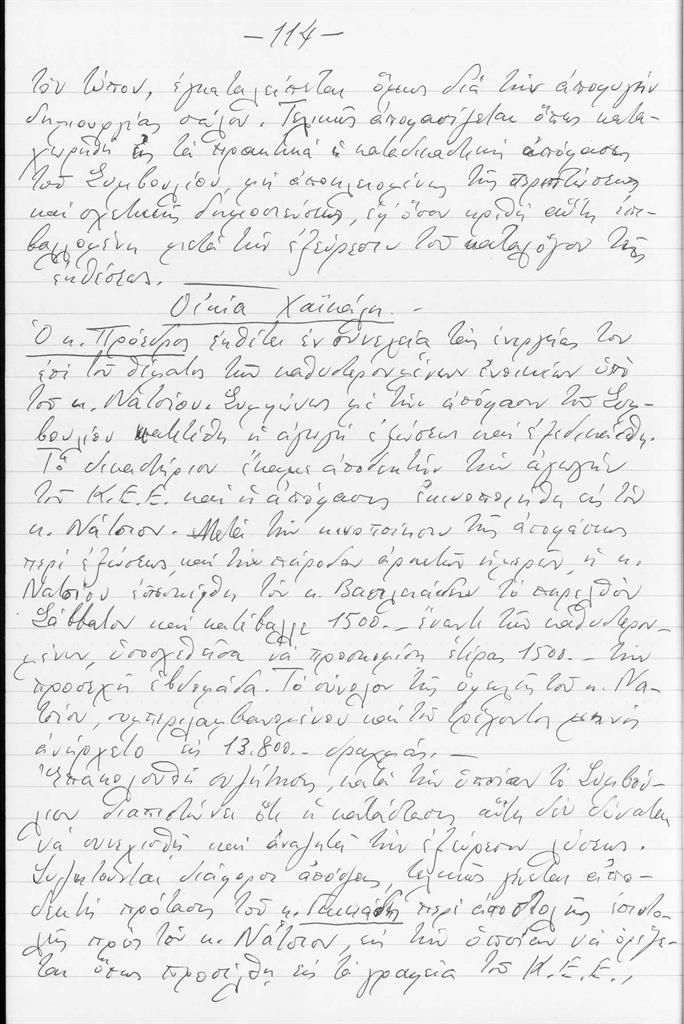 -114-
τὸν τύπον, ἐγκαταλείπεται ὅμως διὰ τὴν ἀποφυγὴν
δημιουργίας σάλου. Τελικῶς ἀποφασίζεται ὅπως κατα-
χωρηθῇ εἰς τὰ πρακτικὰ ἡ καταδικαστικὴ ἀπόφασις
τοῦ Συμβουλίου, μὴ ἀποκλειομένης τῆς περιπτώσεως
καὶ σχετικῆς δημοσιεύσεως, ἐφ' ὅσον κριθῇ αὕτη ἐπι-
βαλλομένη μετὰ τὴν ἐξεύρεσιν τοῦ καταλόγου τῆς
ἐκθέσεως.
Οἰκία Χαϊκάλη.-
Ὁ κ. Πρόεδρος ἐκθέτει ἐν συνεχείᾳ τὰς ἐνεργείας του
ἐπὶ τοῦ θέματος τῶν καθυστερουμένων ἐνοικίων ὑπὸ
τοῦ κ. Νάτσιου. Συμφώνως μὲ τὴν ἀπόφασιν τοῦ Συμ-
βουλίου κατετέθη ἡ ἀγωγὴ ἐξώσεως καὶ ἐξεδικάσθη.
Τὸ δικαστήριον ἔκαμε ἀποδεκτὴν τὴν ἀγωγὴν
τοῦ Κ.Ε.Ε. καὶ ἡ ἀπόφασις ἐκοινοποιήθη εἰς τὸν
κ. Νάτσιον. Μετὰ τὴν κοινοποίησιν τῆς ἀποφάσεως
περὶ ἐξώσεως, καὶ τὴν πάροδον ἀρκετῶν ἡμερῶν, ἡ κ.
Νατσίου ἐπεσκέφθη τὸν κ. Βασιλειάδην τὸ παρελθὸν
Σάββατον καὶ κατέβαλλε 1500.- ἔναντι τῶν καθυστερου-
μένων, ὑποσχεθεῖσα νὰ προσκομίσῃ ἑτέρας 1500.- τὴν
προσεχῆ ἑβδομάδα. Τὸ σύνολον τῆς ὀφειλῆς τοῦ κ. Να-
τσίου, συμπεριλαμβανομένου καὶ τοῦ τρέχοντος μηνὸς
ἀνήρχετο εἰς 13.800.- δραχμάς.-
Ἐπακολουθεῖ συζήτησις, κατὰ τὴν ὁποίαν τὸ Συμβού-
λιον διαπιστώνει ὅτι ἡ κατάστασις αὕτη δὲν δύναται
νὰ συνεχισθῇ καὶ ἀναζητᾶ τὴν ἐξεύρεσιν λύσεως.
Συζητοῦνται διάφοροι ἀπόψεις, τελικῶς γίνεται ἀπο-
δεκτὴ πρότασις τοῦ κ. περὶ ἀποστολῆς ἐπιστο-
λῆς πρὸς τὸν κ. Νάτσιον, εἰς τὴν ὁποίαν νὰ ὁρίζε-
ται ὅπως προσέλθῃ εἰς τὰ γραφεῖα τοῦ Κ.Ε.Ε.,